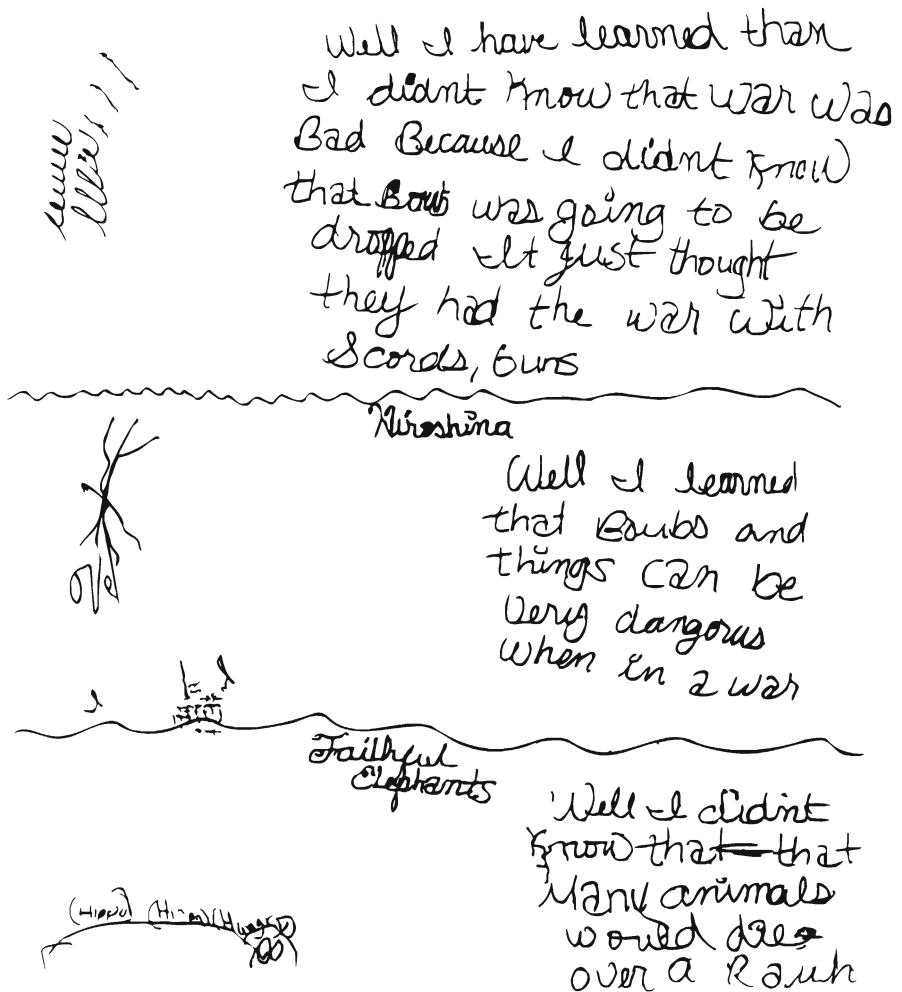 Well I have learned than
I didnt Know that war was
Bad Because I didnt Know
that Bouts was going to be
dropped It Just thought
they had the war with
Scords, Guns
Hiroshina
Well I learned
that Boubs and
things can be
Very dangorus
When in a war
Faithful
Elephants
Well I didnt
Know that that
Many animals
would die
over a